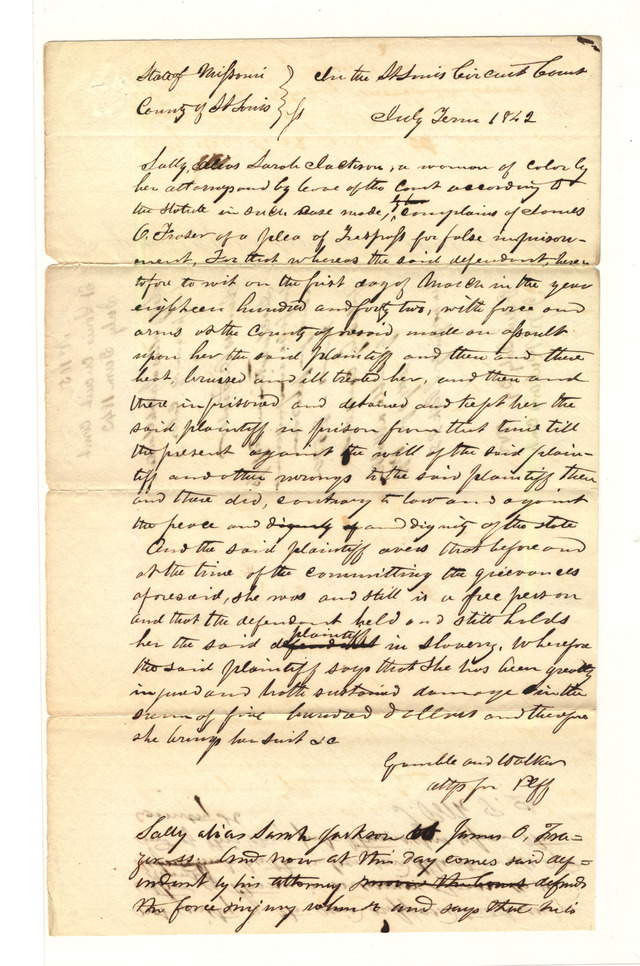 State of Missouri } In the St Louis Circuit Court
County of St Louis } ss July Term 1842
Sally, alias Sarah Jackson, a woman of color by
her attorneys and by leave of the Court according to
the statute in such case made, complains of James
O. Fraser of a plea of Trespass for false imprison-
ment, For that whereas the said defendant, here-
tofore to wit on the first day of March in the year
eighteen hundred and forty two, with force and
arms at the County aforesaid, made an assault
upon her the said plaintiff and then and there
beat, bruised and ill treated her, and then and
there imprisoned and detained and kept her the
said plaintiff in prison from that time till
the present against the will of the said plain-
tiff and other wrongs to the said plaintiff then
and there did, contrary to law and against
the peace and dignity of and dignity of the state
And the said plaintiff avers that before and
at the time of the committing the grievances
aforesaid, she was and still is a free person
and that the defendant held and still holds
her the said defendant plaintiff in slavery. Wherefore
the said plaintiff says that she has been greatly
injured and hath sustained damage in the
sum of five hundred dollars and therefore
she brings her suit &c
Gamble and Walker
attys for Plff
Sally alias Sarah Jackson James O, Fra-
zier ss. And now at this day comes said def-
endant by his attorney defends
the force injury when & and says that he is